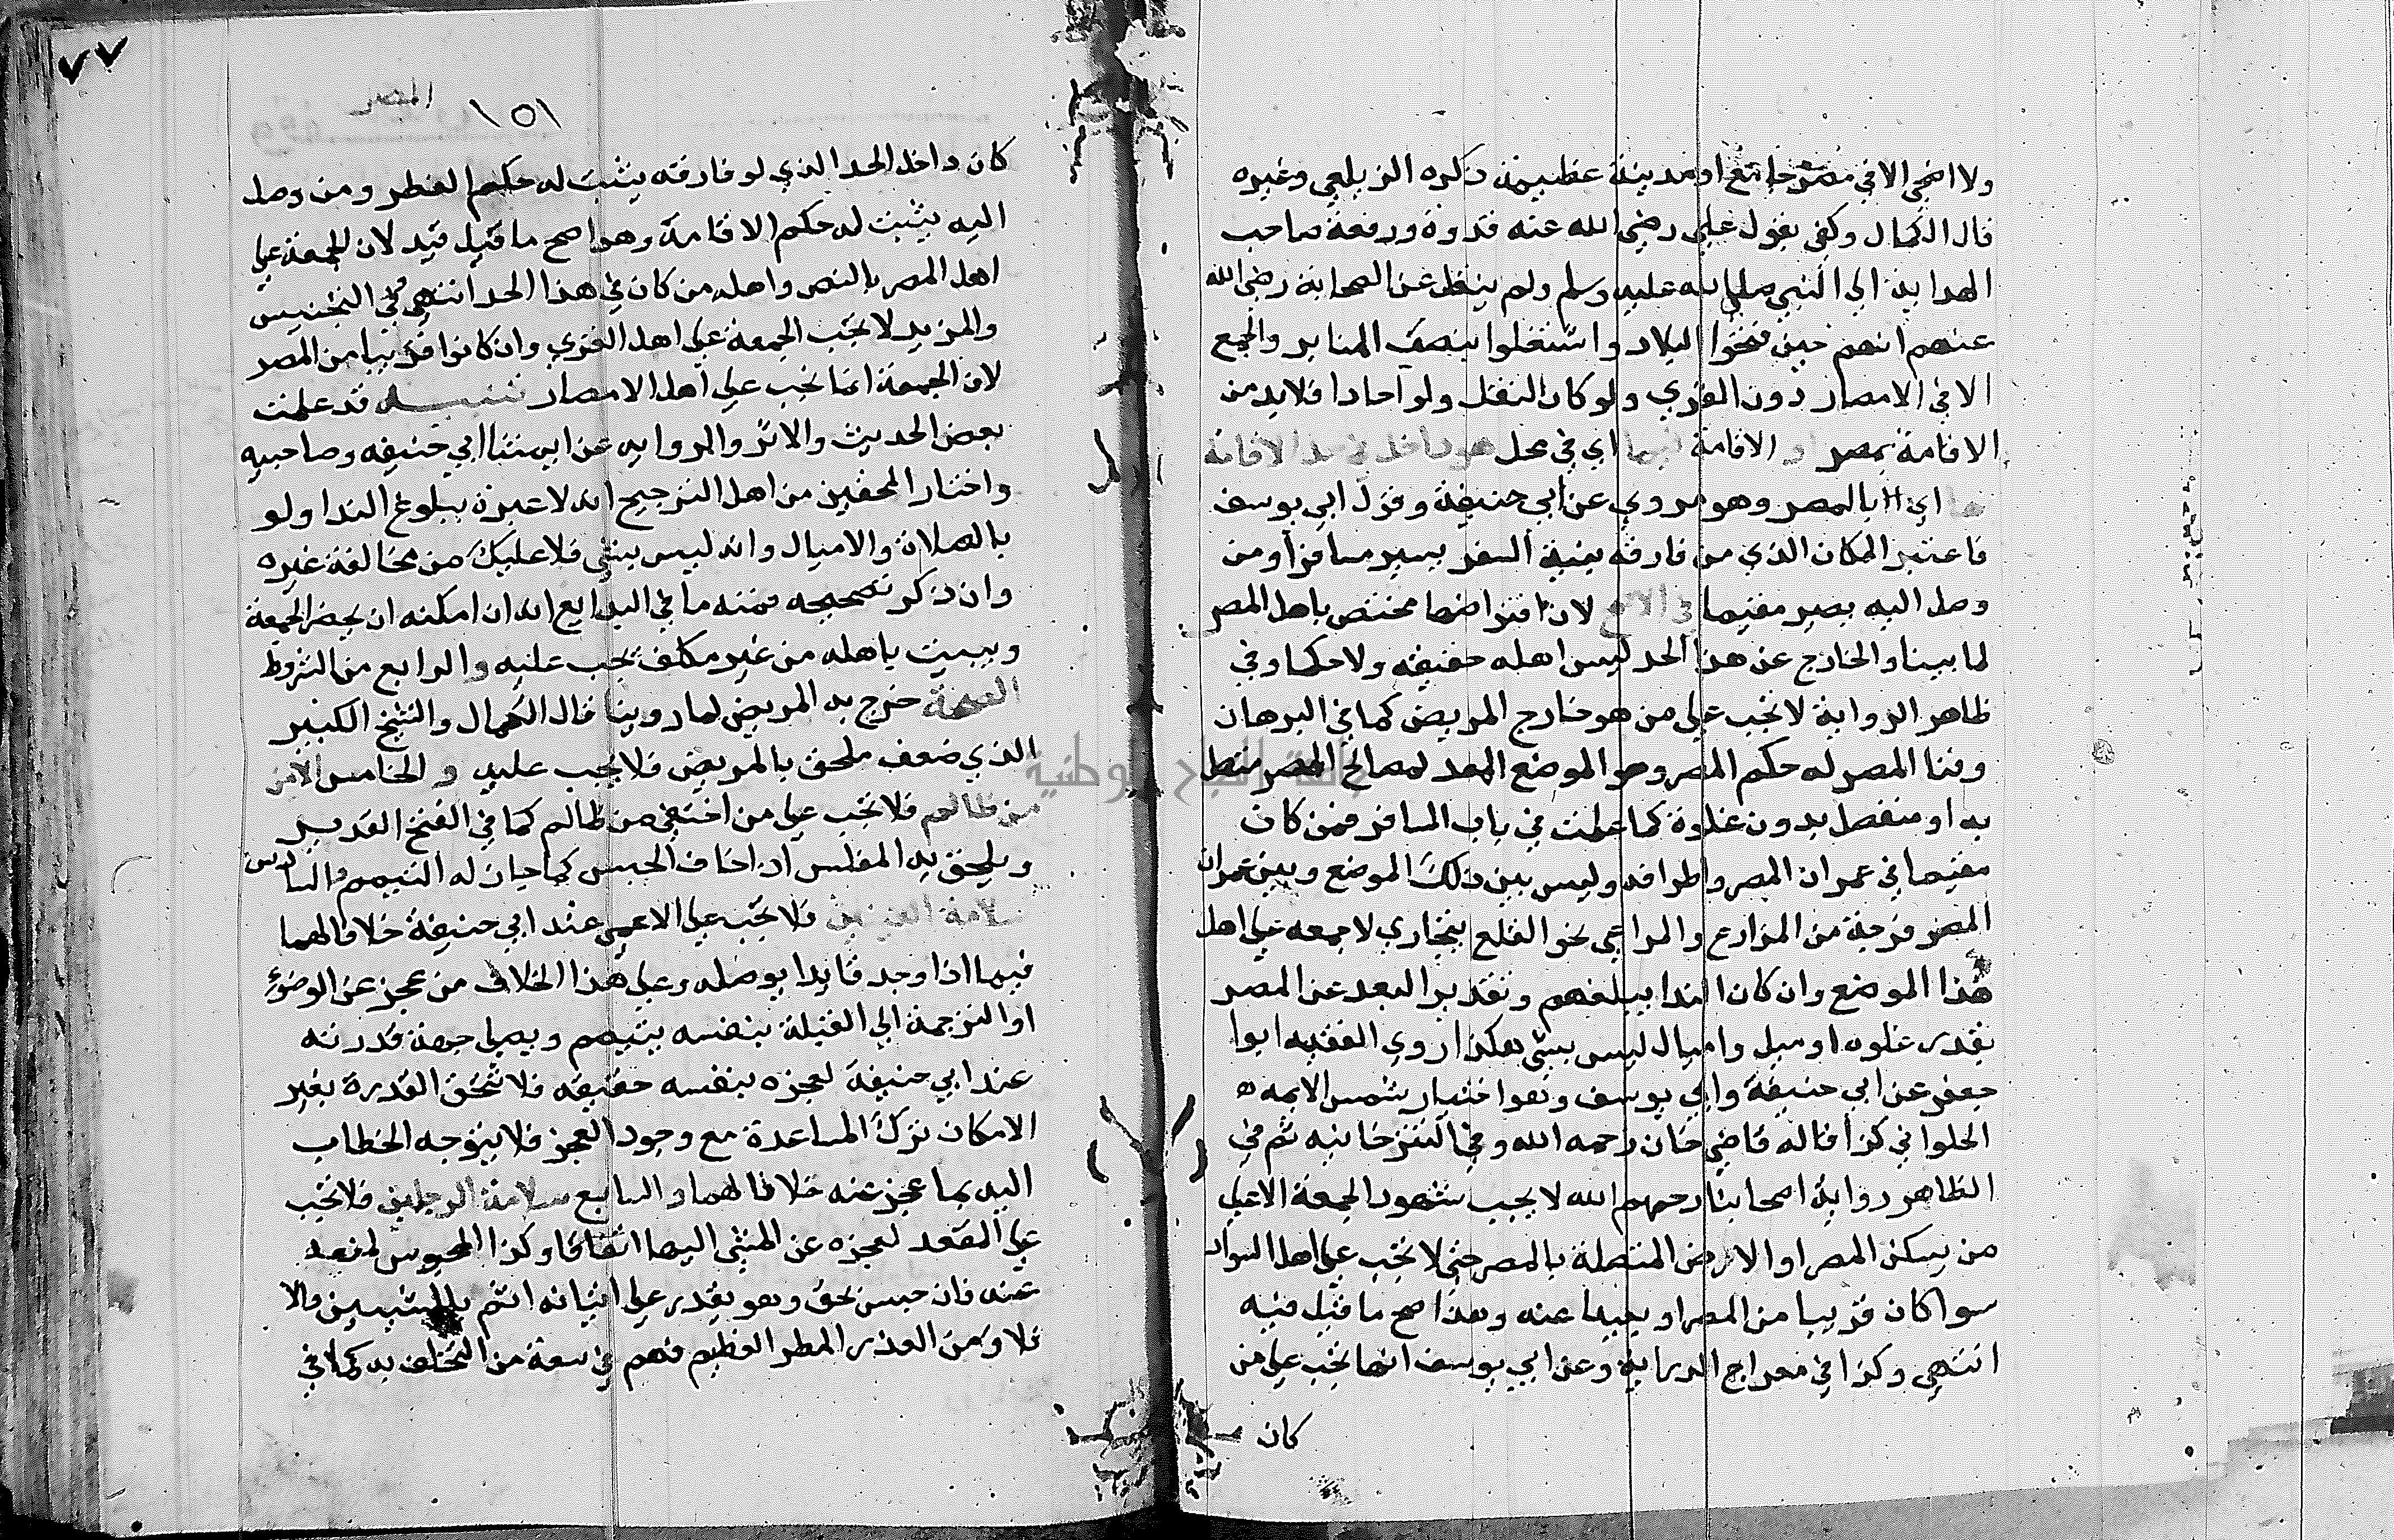 ولا اضحى الا في مصر جامع او مدينة عظيمة ذكره الزيلعي وغيره
قال الكمال وكفى بقول علي رضي الله عنه قدوة ورفعه صاحب
الهداية الى النبي صلى الله عليه وسلم ولم ينقل عن الصحابة رضي الله
عنهم انهم حين فتحوا البلاد واشتغلوا بنصب المنابر والجمع
الا في الامصار دون القرى ولو كان لنقل ولو آحادا فلا بد من
الاقامة بمصر او الاقامة فيما اي في محل هو داخل في حد الاقامة
بها اي بالمصر وهو مروي عن ابي حنيفة وقول ابي يوسف
فاعتبر المكان الذي من فارقه بنية السفر يصير مسافرا ومن
وصل اليه يصير مقيما في الاصح لان افتراضها مختص باهل المصر
لما بينا والخارج عن هذا الحد ليس اهله حقيقه ولا حكما وفي
ظاهر الرواية لا تجب على من هو خارج المريض كما في البرهان
وفنا المصر له حكم المصر وهو الموضع المعد لمصالح المصر متصل
به او منفصل بدون غلوة كما علمت في باب المسافر فمن كان
مقيما في عمران المصر واطرافه وليس بين ذلك الموضع وبين عمران
المصر فرجة من المزارع والمراعي نحو القلع ببخارى لا جمعه على اهل
هذا الموضع وان كان الندا يبلغهم وتقدير البعد عن المصر
بقدر غلوه او ميل واميال ليس بشى هكذا روي الفقيه ابوا
جعفر عن ابي حنيفة وابي يوسف وهو اختيار شمس الايمه
الحلواني كذا قاله قاضي خان رحمه الله وفي التترخانيه ثم في
الظاهر رواية اصحابنا رحمهم الله لا يجب شهود الجمعة الا على
من يسكن المصر او الارض المتصلة بالمصر حتى لا تجب على اهل السواد
سوا كان قريبا من المصر او بعيدا عنه وهذا اصح ما قيل فيه
انتهى وكذا في معراج الدراية وعن ابي يوسف انها تجب على من
كان
٧٧
المصر
١٥١
كان داخل الحد الذي لو فارقه يثبت له حكم الفطر ومن وصل
اليه يثبت له حكم الاقامة وهو اصح ما قيل فيه لان الجمعة على
اهل المصر بالنص واهله من كان في هذا الحد انتهى وفي التجنيس
والمزيد لا تجب الجمعة على اهل القرى وان كانوا قريبا من المصر
لان الجمعة انما تجب على اهل الامصار تنبيه قد علمت
بعض الحديث والاثر والروايه عن ايمتنا ابي حنيفه وصاحبيه
واختار المحققين من اهل الترجيح انه لا عبرة ببلوغ الندا ولو
بالصلاة والاميال وانه ليس بشى فلا عليك من مخالفة غيره
وان ذكر تصحيحه فمنه ما في البدايع انه ان امكنه ان يحضر الجمعة
ويبيت باهله من غير مكلف تجب عليه والرابع من الشروط
الصحة خرج به المريض لما روينا قال الكمال والشيخ الكبير
الذي ضعف ملحق بالمريض فلا يجب عليه والخامس الامن
من ظالم فلا تجب على من اختفى من ظالم كما في الفتح القدير
ويلحق به المفلس اذا خاف الحبس كما جاز له التيمم والسادس
سلامة العينين فلا تجب على الاعمى عند ابي حنيفة خلافا لهما
فيما اذا وجد قايدا يوصله وعلى هذا الخلاف من عجز عن الوضوء
او التوجه الى القبلة بنفسه يتيمم ويصلي جهة قدرته
عند ابي حنيفة لعجزه بنفسه حقيقه فلا تتحقق القدرة بغير
الامكان ترك المساعدة مع وجود العجز فلا يتوجه الخطاب
اليه بما عجز عنه خلافا لهما والسابع سلامة الرجلين فلا تجب
على المقعد لعجزه عن المشي اليها اتفاقا وكذا المحبوس
عنه فان حبس بحق وهو يقدر على اتيانه اثم والا
فلا ومن العذر المطر العظيم فهم في سعة من التخلف به كما في